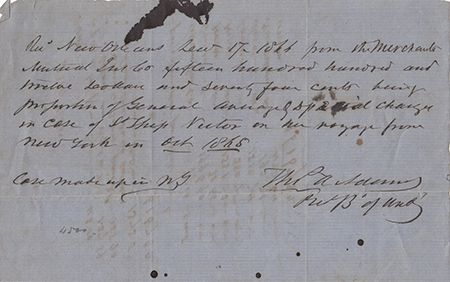 Rec^d New Orleans Decr 17 1866 from the Merchants
Mutual Ins Co fifteen hundred hundred and
twelve dollars and seventy four cents being
proportion of General average & special charges
in case of St Ship Victor on her voyage from
New York in Oct 1866
Case made up in NY
Thos A Adams
Prest Bd of Und
4500